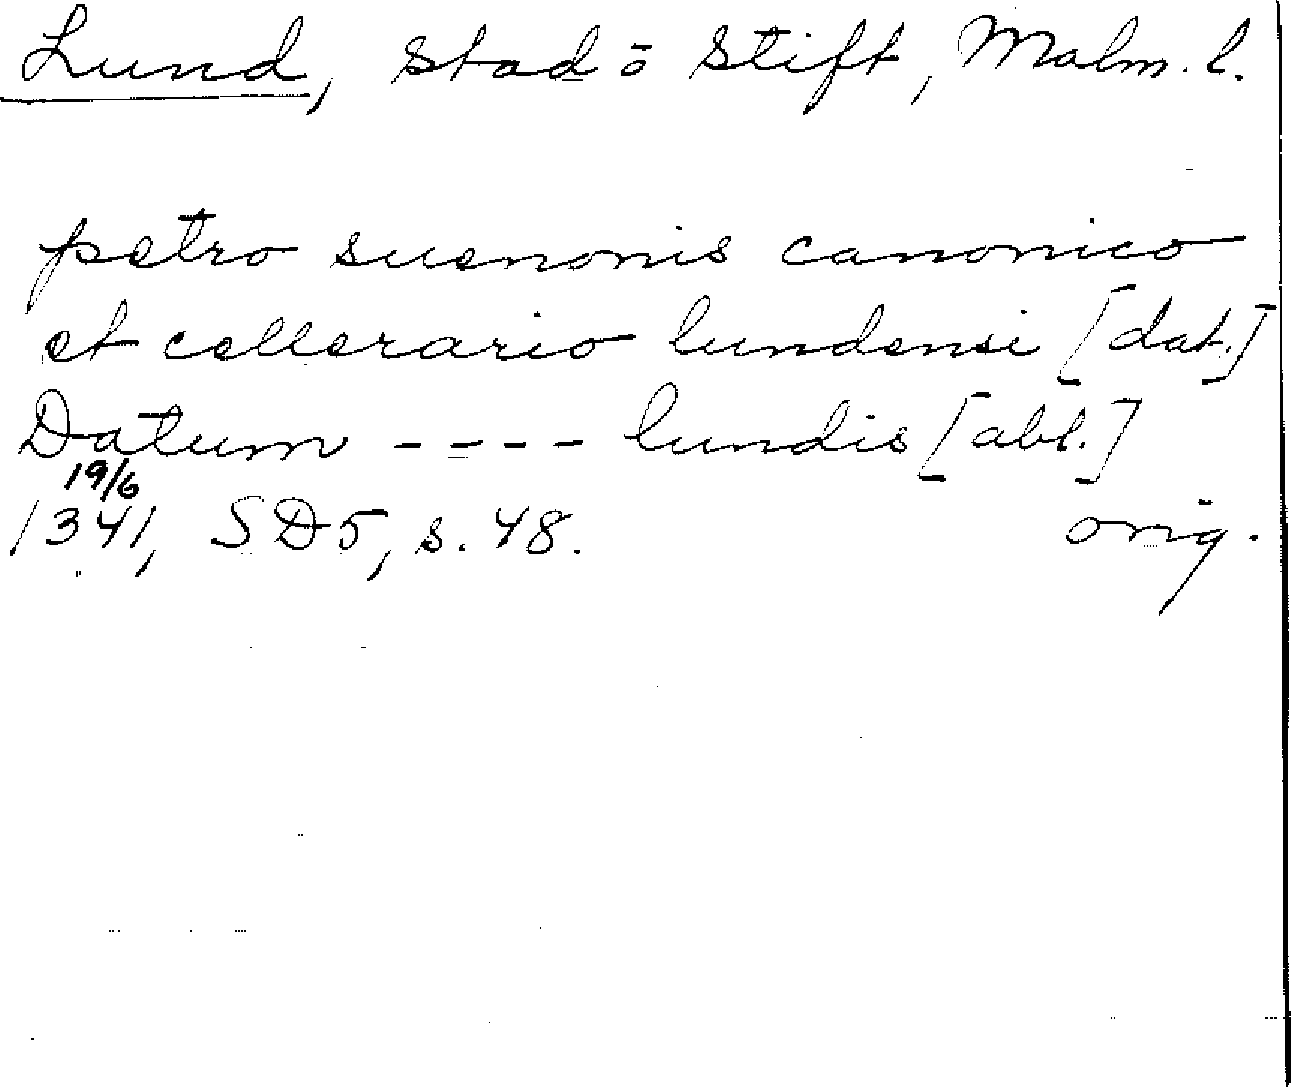 Lund, stad o stift, Malm. l.
petro suenonis canonico
et cellerario lundensi [dat.]
Datum ---- lundis [abl.]
19/6
1341, SD5, s. 48. orig.